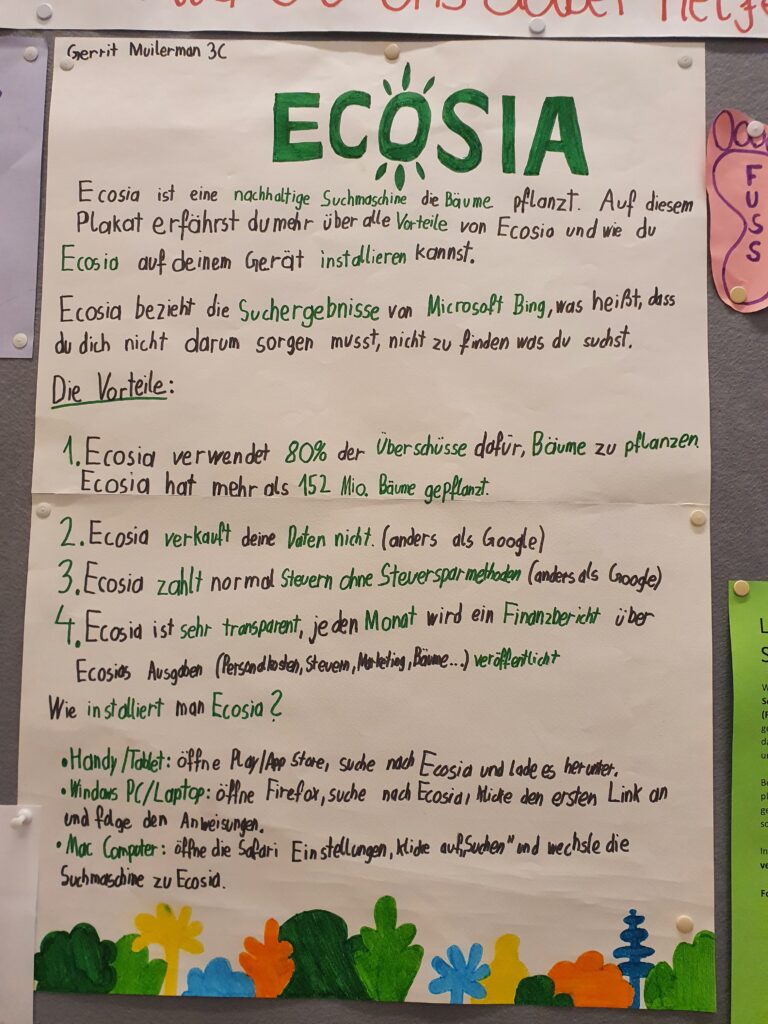 uns dabei helfe
Gerrit Muilerman 3C
ECOSIA
Ecosia ist eine nachhaltige Suchmaschine die Bäume pflanzt. Auf diesem
Plakat erfährst du mehr über alle Vorteile von Ecosia und wie du
Ecosia auf deinem Gerät installieren kannst.
Ecosia bezieht die Suchergebnisse von Microsoft Bing, was heißt, dass
du dich nicht darum sorgen musst, nicht zu finden was du suchst.
Die Vorteile:
1. Ecosia verwendet 80% der Überschüsse dafür, Bäume zu pflanzen
Ecosia hat mehr als 152 Mio. Bäume gepflanzt.
2. Ecosia verkauft deine Daten nicht. (anders als Google)
3. Ecosia zahlt normal Steuern ohne Steuersparmethoden (anders als Google)
4. Ecosia ist sehr transparent, jeden Monat wird ein Finanzbericht über
Ecosias Ausgaben (Personalkosten, Steuern, Marketing, Bäume...) veröffentlicht
Wie installiert man Ecosia?
• Handy/Tablet: öffne Play/App Store, suche nach Ecosia und lade es herunter.
• Windows PC/Laptop: öffne Firefox, suche nach Ecosia, klicke den ersten Link an
und folge den Anweisungen.
• Mac Computer: öffne die Safari Einstellungen, klicke auf „Suchen" und wechsle die
Suchmaschine zu Ecosia.
FUSS